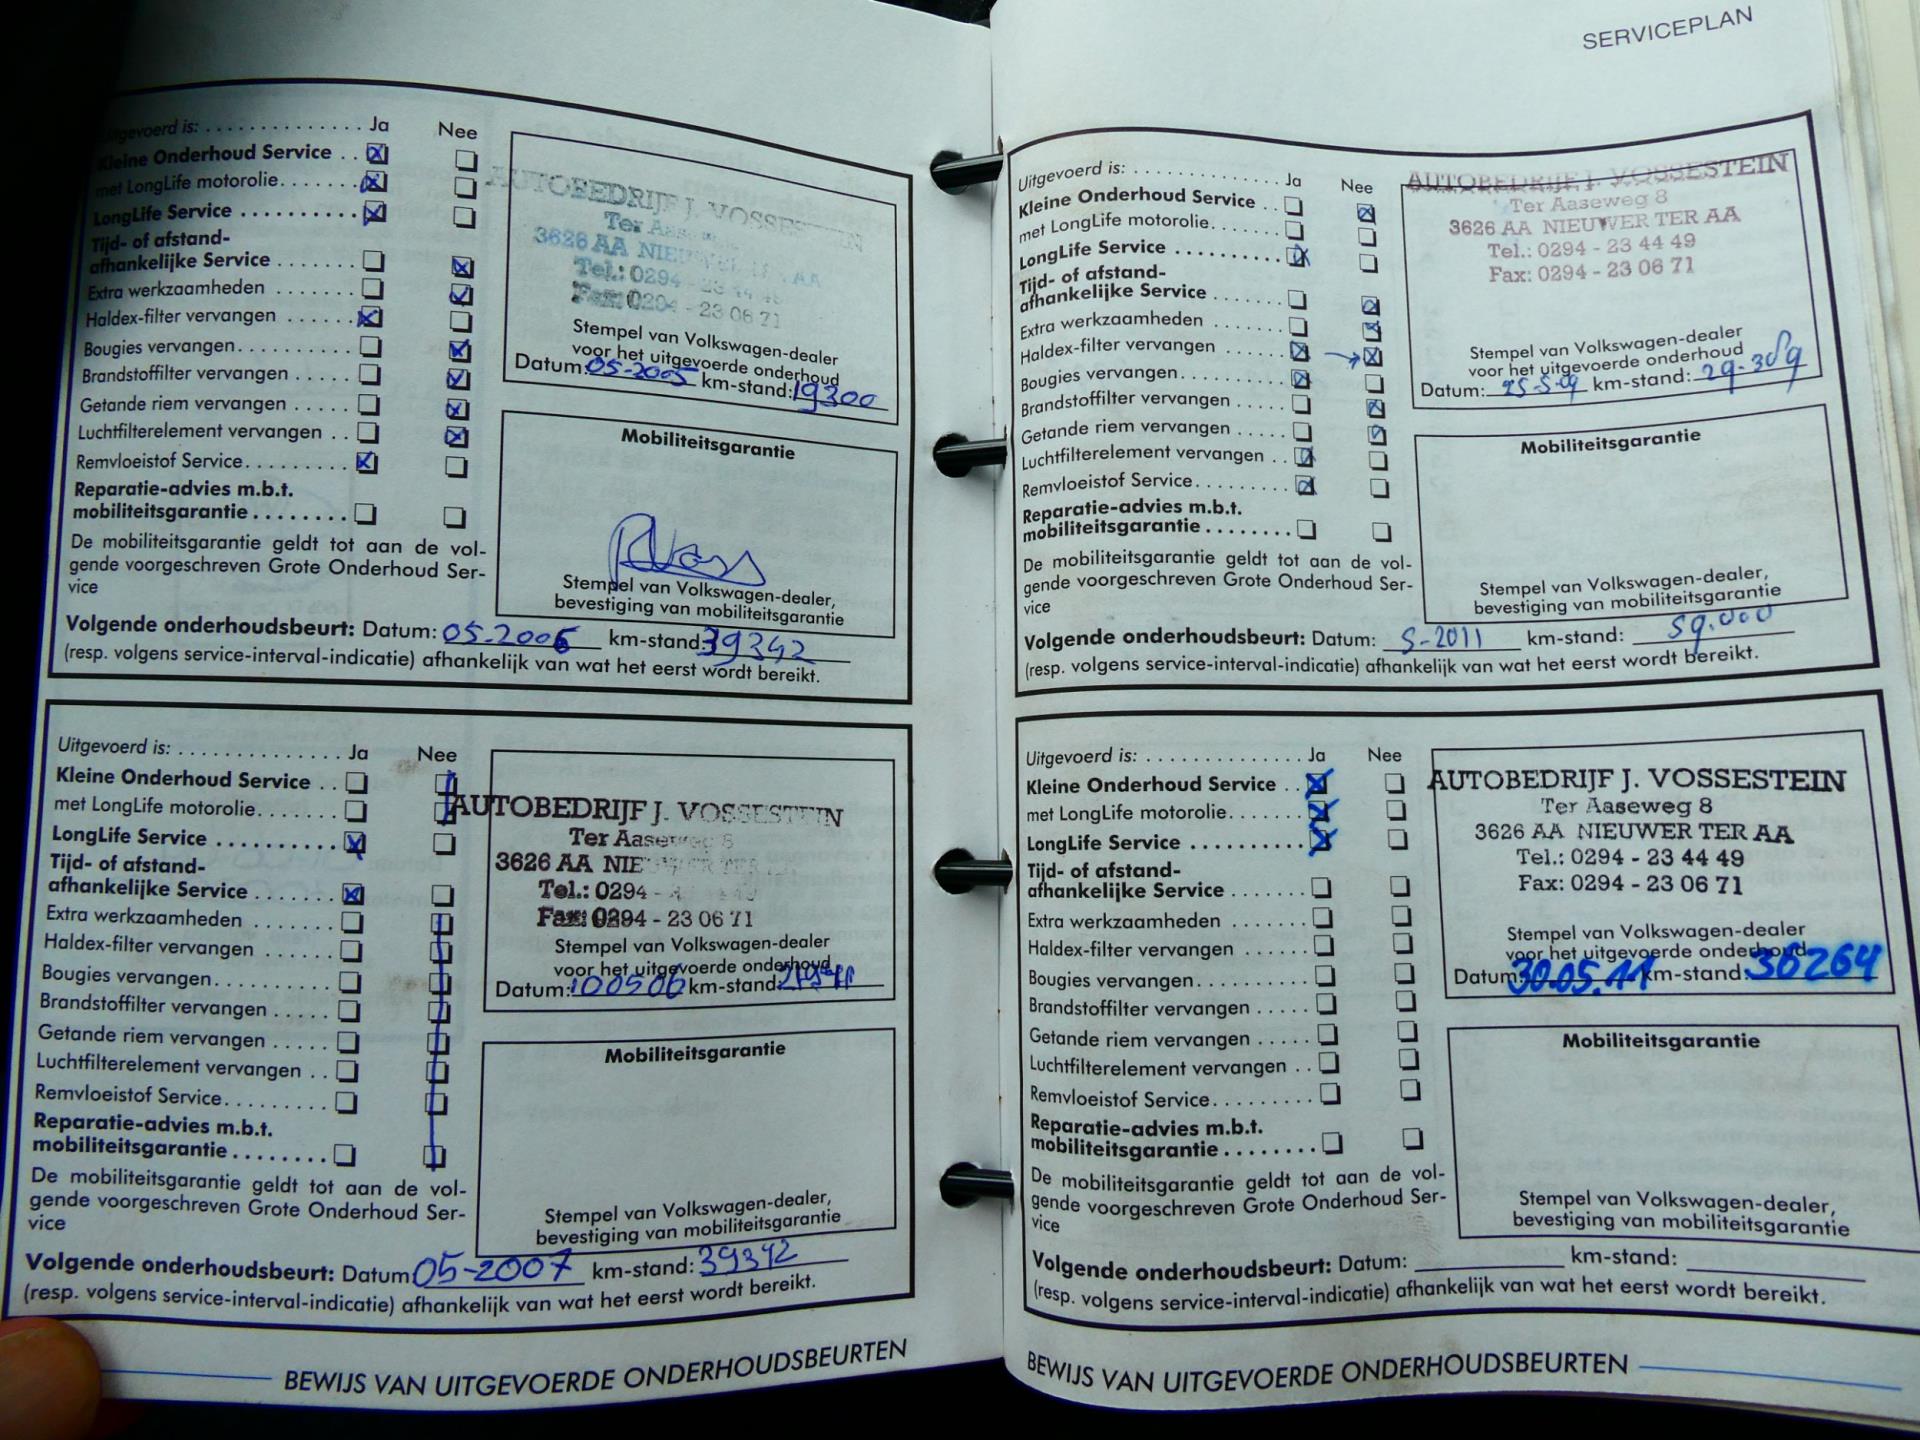 SERVICEPLAN
Uitgevoerd is: .............. Ja Nee
Kleine Onderhoud Service ..
met LongLife motorolie.......
LongLife Service ..........
Tijd- of afstand-
afhankelijke Service .......
Extra werkzaamheden .......
Haldex-filter vervangen ......
Bougies vervangen...........
Brandstoffilter vervangen .....
Getande riem vervangen .....
Luchtfilterelement vervangen ..
Remvloeistof Service..........
Reparatie-advies m.b.t.
mobiliteitsgarantie ........
De mobiliteitsgarantie geldt tot aan de vol-
gende voorgeschreven Grote Onderhoud Ser-
vice
AUTOBEDRIJF J. VOSSESTEIN
Ter Aaseweg
3626 AA NIEUWER TER AA
Tel.: 0294 - 23 44 49
Fax: 0294 - 23 06 71
Stempel van Volkswagen-dealer
voor het uitgevoerde onderhoud
Datum: 05-2005 km-stand: 19300
Mobiliteitsgarantie
Stempel van Volkswagen-dealer,
bevestiging van mobiliteitsgarantie
Volgende onderhoudsbeurt: Datum: 05-2006 km-stand: 39342
(resp. volgens service-interval-indicatie) afhankelijk van wat het eerst wordt bereikt.
Uitgevoerd is: .............. Ja Nee
Kleine Onderhoud Service ..
met LongLife motorolie.......
LongLife Service ..........
Tijd- of afstand-
afhankelijke Service .......
Extra werkzaamheden .......
Haldex-filter vervangen ......
Bougies vervangen...........
Brandstoffilter vervangen .....
Getande riem vervangen .....
Luchtfilterelement vervangen ..
Remvloeistof Service..........
Reparatie-advies m.b.t.
mobiliteitsgarantie ........
De mobiliteitsgarantie geldt tot aan de vol-
gende voorgeschreven Grote Onderhoud Ser-
vice
AUTOBEDRIJF J. VOSSESTEIN
Ter Aaseweg 8
3626 AA NIEUWER TER
Tel.: 0294 -
Fax: 0294 - 23 06 71
Stempel van Volkswagen-dealer
voor het uitgevoerde onderhoud
Datum: 100506 km-stand:
Mobiliteitsgarantie
Stempel van Volkswagen-dealer,
bevestiging van mobiliteitsgarantie
Volgende onderhoudsbeurt: Datum 05-2007 km-stand: 39342
(resp. volgens service-interval-indicatie) afhankelijk van wat het eerst wordt bereikt.
BEWIJS VAN UITGEVOERDE ONDERHOUDSBEURTEN
Uitgevoerd is: .............. Ja Nee
Kleine Onderhoud Service ..
met LongLife motorolie.......
LongLife Service ..........
Tijd- of afstand-
afhankelijke Service .......
Extra werkzaamheden .......
Haldex-filter vervangen ......
Bougies vervangen...........
Brandstoffilter vervangen .....
Getande riem vervangen .....
Luchtfilterelement vervangen ..
Remvloeistof Service..........
Reparatie-advies m.b.t.
mobiliteitsgarantie ........
De mobiliteitsgarantie geldt tot aan de vol-
gende voorgeschreven Grote Onderhoud Ser-
vice
AUTOBEDRIJF J. VOSSESTEIN
Ter Aaseweg 8
3626 AA NIEUWER TER AA
Tel.: 0294 - 23 44 49
Fax: 0294 - 23 06 71
Stempel van Volkswagen-dealer
voor het uitgevoerde onderhoud
Datum: 25-5-09 km-stand: 29.389
Mobiliteitsgarantie
Stempel van Volkswagen-dealer,
bevestiging van mobiliteitsgarantie
Volgende onderhoudsbeurt: Datum: 5-2011 km-stand: 59.000
(resp. volgens service-interval-indicatie) afhankelijk van wat het eerst wordt bereikt.
Uitgevoerd is: .............. Ja Nee
Kleine Onderhoud Service ..
met LongLife motorolie.......
LongLife Service ..........
Tijd- of afstand-
afhankelijke Service .......
Extra werkzaamheden .......
Haldex-filter vervangen ......
Bougies vervangen...........
Brandstoffilter vervangen .....
Getande riem vervangen .....
Luchtfilterelement vervangen ..
Remvloeistof Service..........
Reparatie-advies m.b.t.
mobiliteitsgarantie ........
De mobiliteitsgarantie geldt tot aan de vol-
gende voorgeschreven Grote Onderhoud Ser-
vice
AUTOBEDRIJF J. VOSSESTEIN
Ter Aaseweg 8
3626 AA NIEUWER TER AA
Tel.: 0294 - 23 44 49
Fax: 0294 - 23 06 71
Stempel van Volkswagen-dealer
voor het uitgevoerde onderhoud
Datum: 30.05.11 km-stand: 36264
Mobiliteitsgarantie
Stempel van Volkswagen-dealer,
bevestiging van mobiliteitsgarantie
Volgende onderhoudsbeurt: Datum: km-stand:
(resp. volgens service-interval-indicatie) afhankelijk van wat het eerst wordt bereikt.
BEWIJS VAN UITGEVOERDE ONDERHOUDSBEURTEN